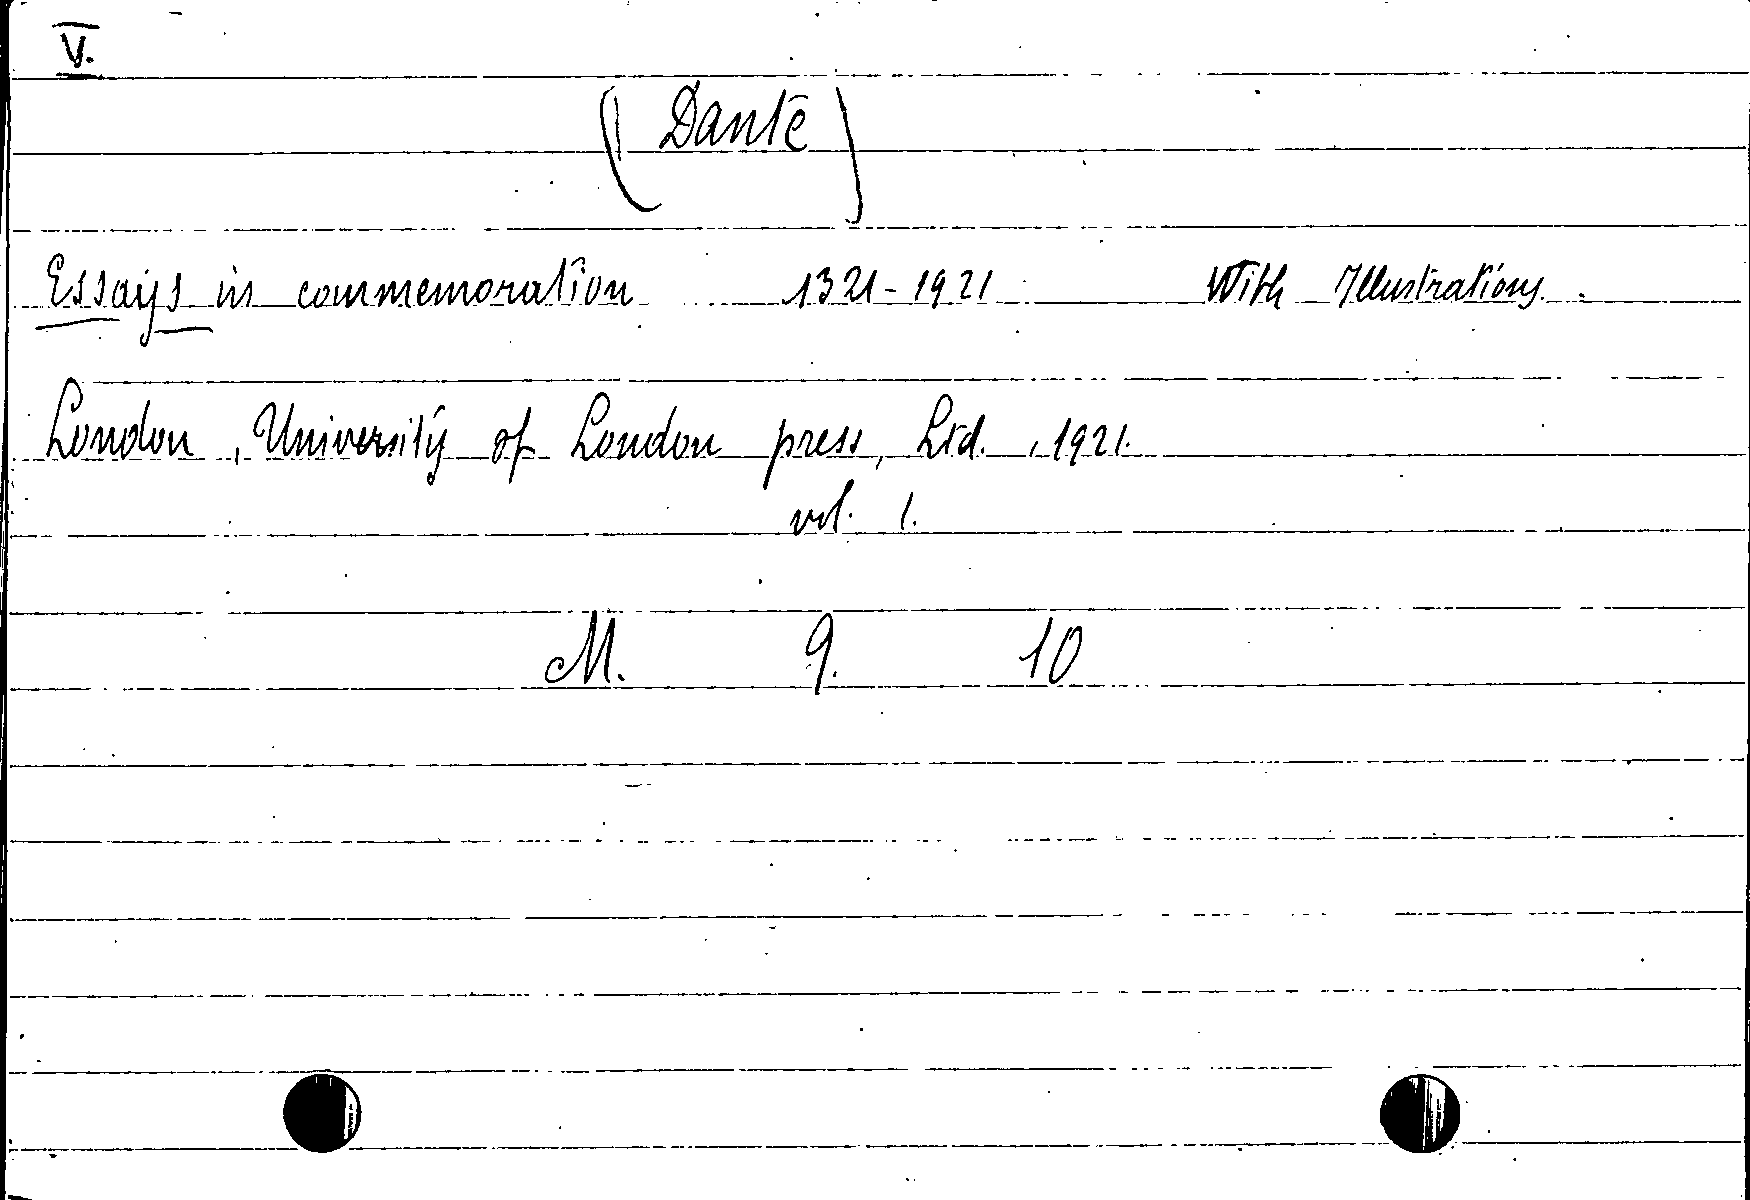 V.
(Dante)
Essays in commemoration 1321-1921 With Illustrations.
London, University of London press, Ltd., 1921.
vol. 1.
M. 9. 10